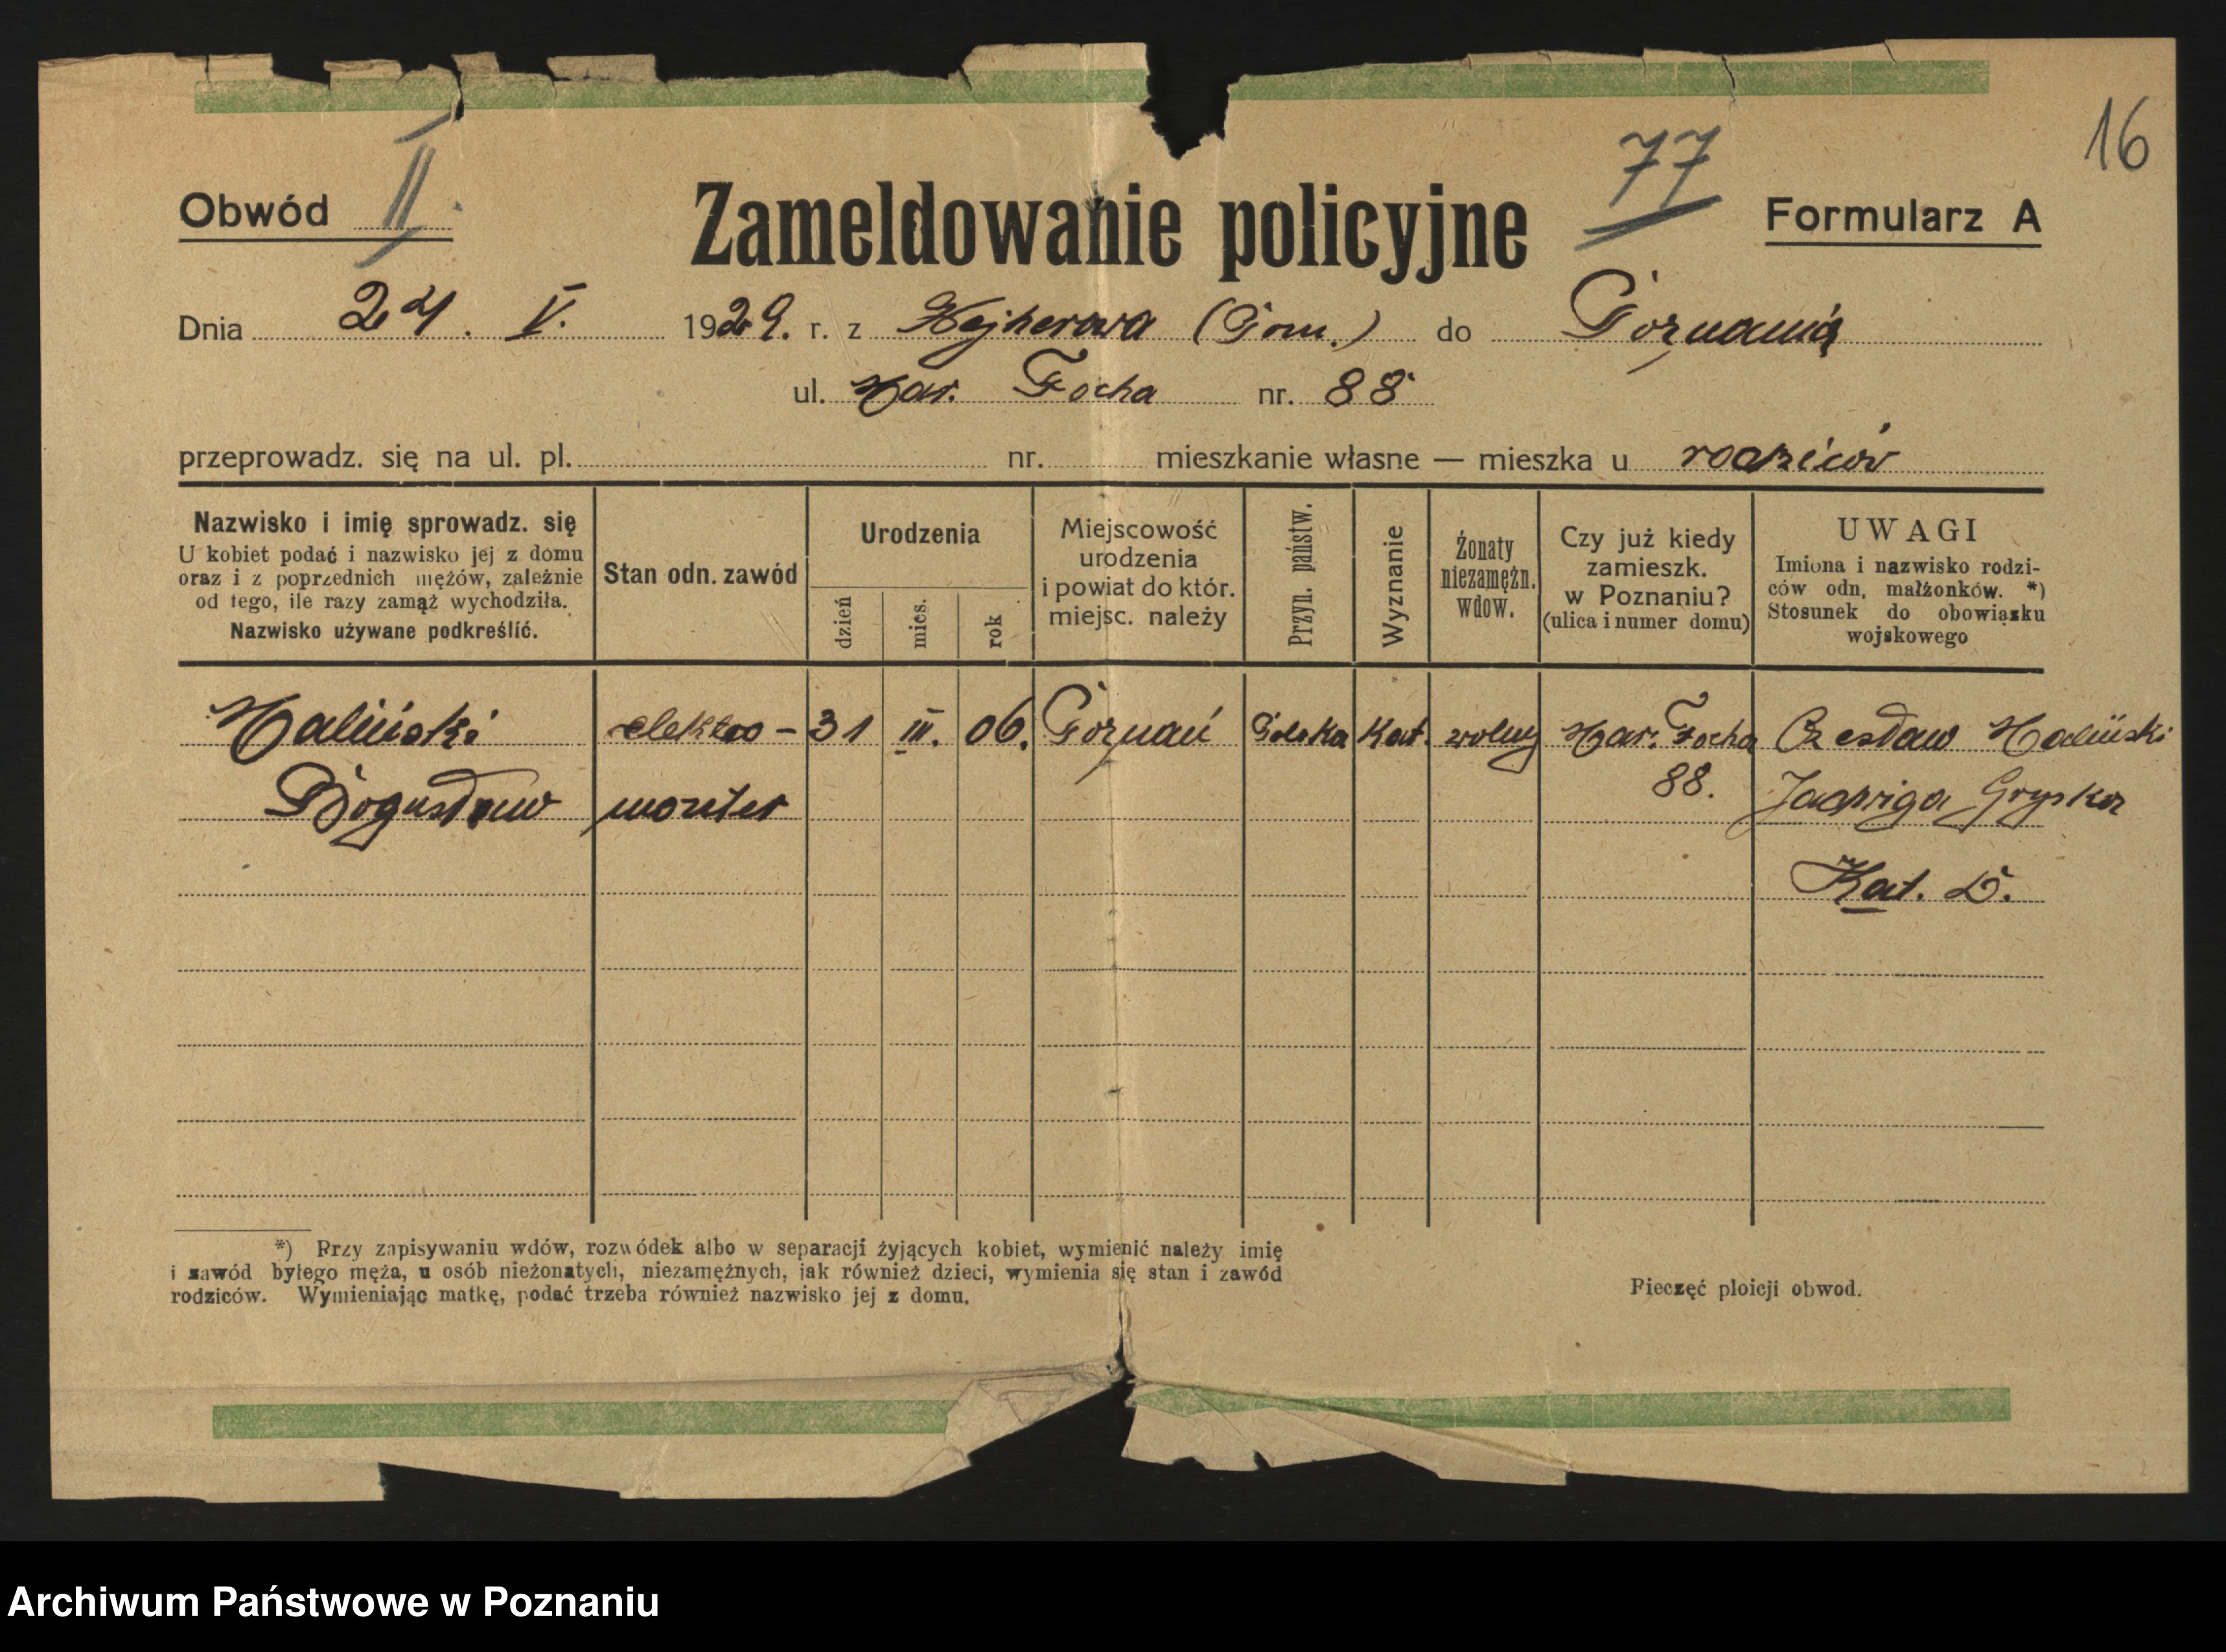 16
77
Obwód II.
Zameldowanie policyjne
Formularz A
Dnia 24. V. 1929. r. z Wejherowa (Pom.) do Poznania
ul. Mar. Focha nr. 88
przeprowadz. się na ul. pl. nr. mieszkanie własne — mieszka u rodziców
Nazwisko i imię sprowadz. się
U kobiet podać i nazwisko jej z domu
oraz i z poprzednich mężów, zależnie
od tego, ile razy zamąż wychodziła.
Nazwisko używane podkreślić.
Stan odn. zawód
Urodzenia
dzień
mies.
rok
Miejscowość
urodzenia
i powiat do któr.
miejsc. należy
Przyn. państw.
Wyznanie
Żonaty
niezamężn.
wdow.
Czy już kiedy
zamieszk.
w Poznaniu?
(ulica i numer domu)
UWAGI
Imiona i nazwisko rodzi-
ców odn. małżonków. *)
Stosunek do obowiązku
wojskowego
Maliński elektro- 31 III. 06. Poznań Polska Kat. wolny Mar. Focha Czesław Maliński
Bogusław monter 88. Jadwiga
Kat. D.
*) Przy zapisywaniu wdów, rozwódek albo w separacji żyjących kobiet, wymienić należy imię
i zawód byłego męża, u osób nieżonatych, niezamężnych, jak również dzieci, wymienia się stan i zawód
rodziców. Wymieniając matkę, podać trzeba również nazwisko jej z domu.
Pieczęć ploicji obwod.
Archiwum Państwowe w Poznaniu